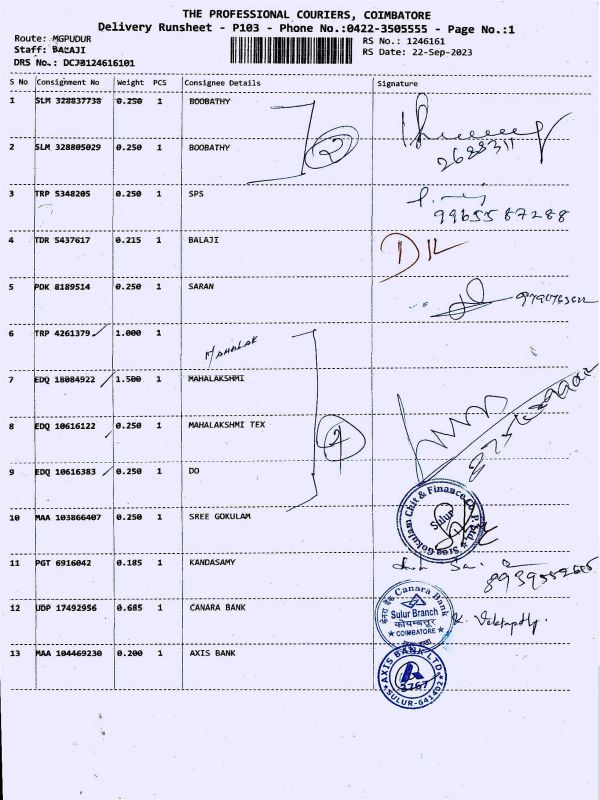 THE PROFESSIONAL COURIERS, COIMBATORE
Delivery Runsheet - P103 - Phone No.:0422-3505555 - Page No.:1
Route: MGPUDUR
RS No.: 1246161
Staff: BALAJI
RS Date: 22-Sep-2023
DRS No.: DCJB124616101
S No Consignment No Weight PCS Consignee Details Signature
1 SLM 328837738 0.250 1 BOOBATHY
2 SLM 328805029 0.250 1 BOOBATHY 2
3 TRP 5348205 0.250 1 SPS
9965587288
4 TDR 5437617 0.215 1 BALAJI
5 PDK 8189514 0.250 1 SARAN
6 TRP 4261379 1.000 1
MAHALAK
7 EDQ 18084922 1.500 1 MAHALAKSHMI
8 EDQ 10616122 0.250 1 MAHALAKSHMI TEX
9 EDQ 10616383 0.250 1 DO
10 MAA 103866407 0.250 1 SREE GOKULAM
Sree Gokulam Chit & Finance Co. P. Ltd.
Sulur
11 PGT 6916042 0.185 1 KANDASAMY
12 UDP 17492956 0.685 1 CANARA BANK
Canara Bank
Sulur Branch
कोयम्बत्तूर
COIMBATORE
13 MAA 104469230 0.200 1 AXIS BANK
AXIS BANK LTD
3767
SULUR-641402